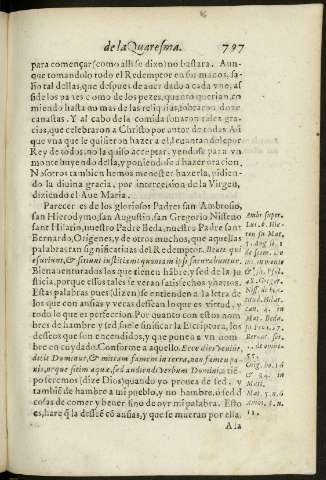 de la Quaresma. 797
para començar (como alli se dixo) no bastara. Aun-
que tomandolo todo el Redemptor en sus manos, sa-
lio tal dellas, que despues de auer dado a cada vno, as
si de los panes como de los pezes, quanto querian, co
miendo hasta no mas de las reliquias, sobraron doze
canastas. Y al cabo de la comida sonaron tales gra-
cias, que celebraron a Christo por autor de todas. Aũ
que vna que le quisieron hazer a el, leuantandole por
Rey de todos, no la quiso aceptar, yendose para vn
monte huyendo della, y poniendose a hazer oracion,
Nosotros tambien hemos menester hazerla, pidien-
do la diuina gracia, por intercession de la Virgen,
diziendo el Aue Maria.
Parecer es de los gloriosos Padres san Ambrosio,
san Hieronymo, san Augustin, san Gregorio Nisseno
sant Hilario, nuestro Padre Beda, nuestro Padre sant
Bernardo, Origenes, y de otros muchos, que aquellas
palabras tan significatiuas del Redemptor. Beati qui
esuriunt, & sitiunt iustitiam: quoniam ipsi saturabuntur.
Bienauenturados los que tienen hãbre, y sed de la ju
sticia, porque essos tales se veran satisfechos y hartos.
Estas palabras pues (dizen) se entienden a la letra de
los que con ansias y veras dessean lo que es virtud, y
todo lo que es perfeccion. Por quanto con estos nom
bres de hambre y sed suele sinificar la Escriptura, los
desseos que son encendidos, y que ponen a vn nom
bre en cuydado. Conforme a aquello. Ecce dies veniũt,
dicit Dominus, & mittam famem in terra, non famem pa-
nis, neque sitim aquæ, sed audiendi verbum Domini: as tiẽ
po seremos (dize Dios) quando yo prouea de sed, y
tambiẽ de hambre a mi pueblo, y no hambre, ò sed d
cosas de comer y beuer sino de oyr mi palabra. Esto
es, harè q̃ la dessee cõ ansias, y que se mueran por ella.
A la
Ambr. super.
Luc. 6. Hie-
ron. su Mat.
5. Aug. li. 1
de serm. Do
mi. in monte